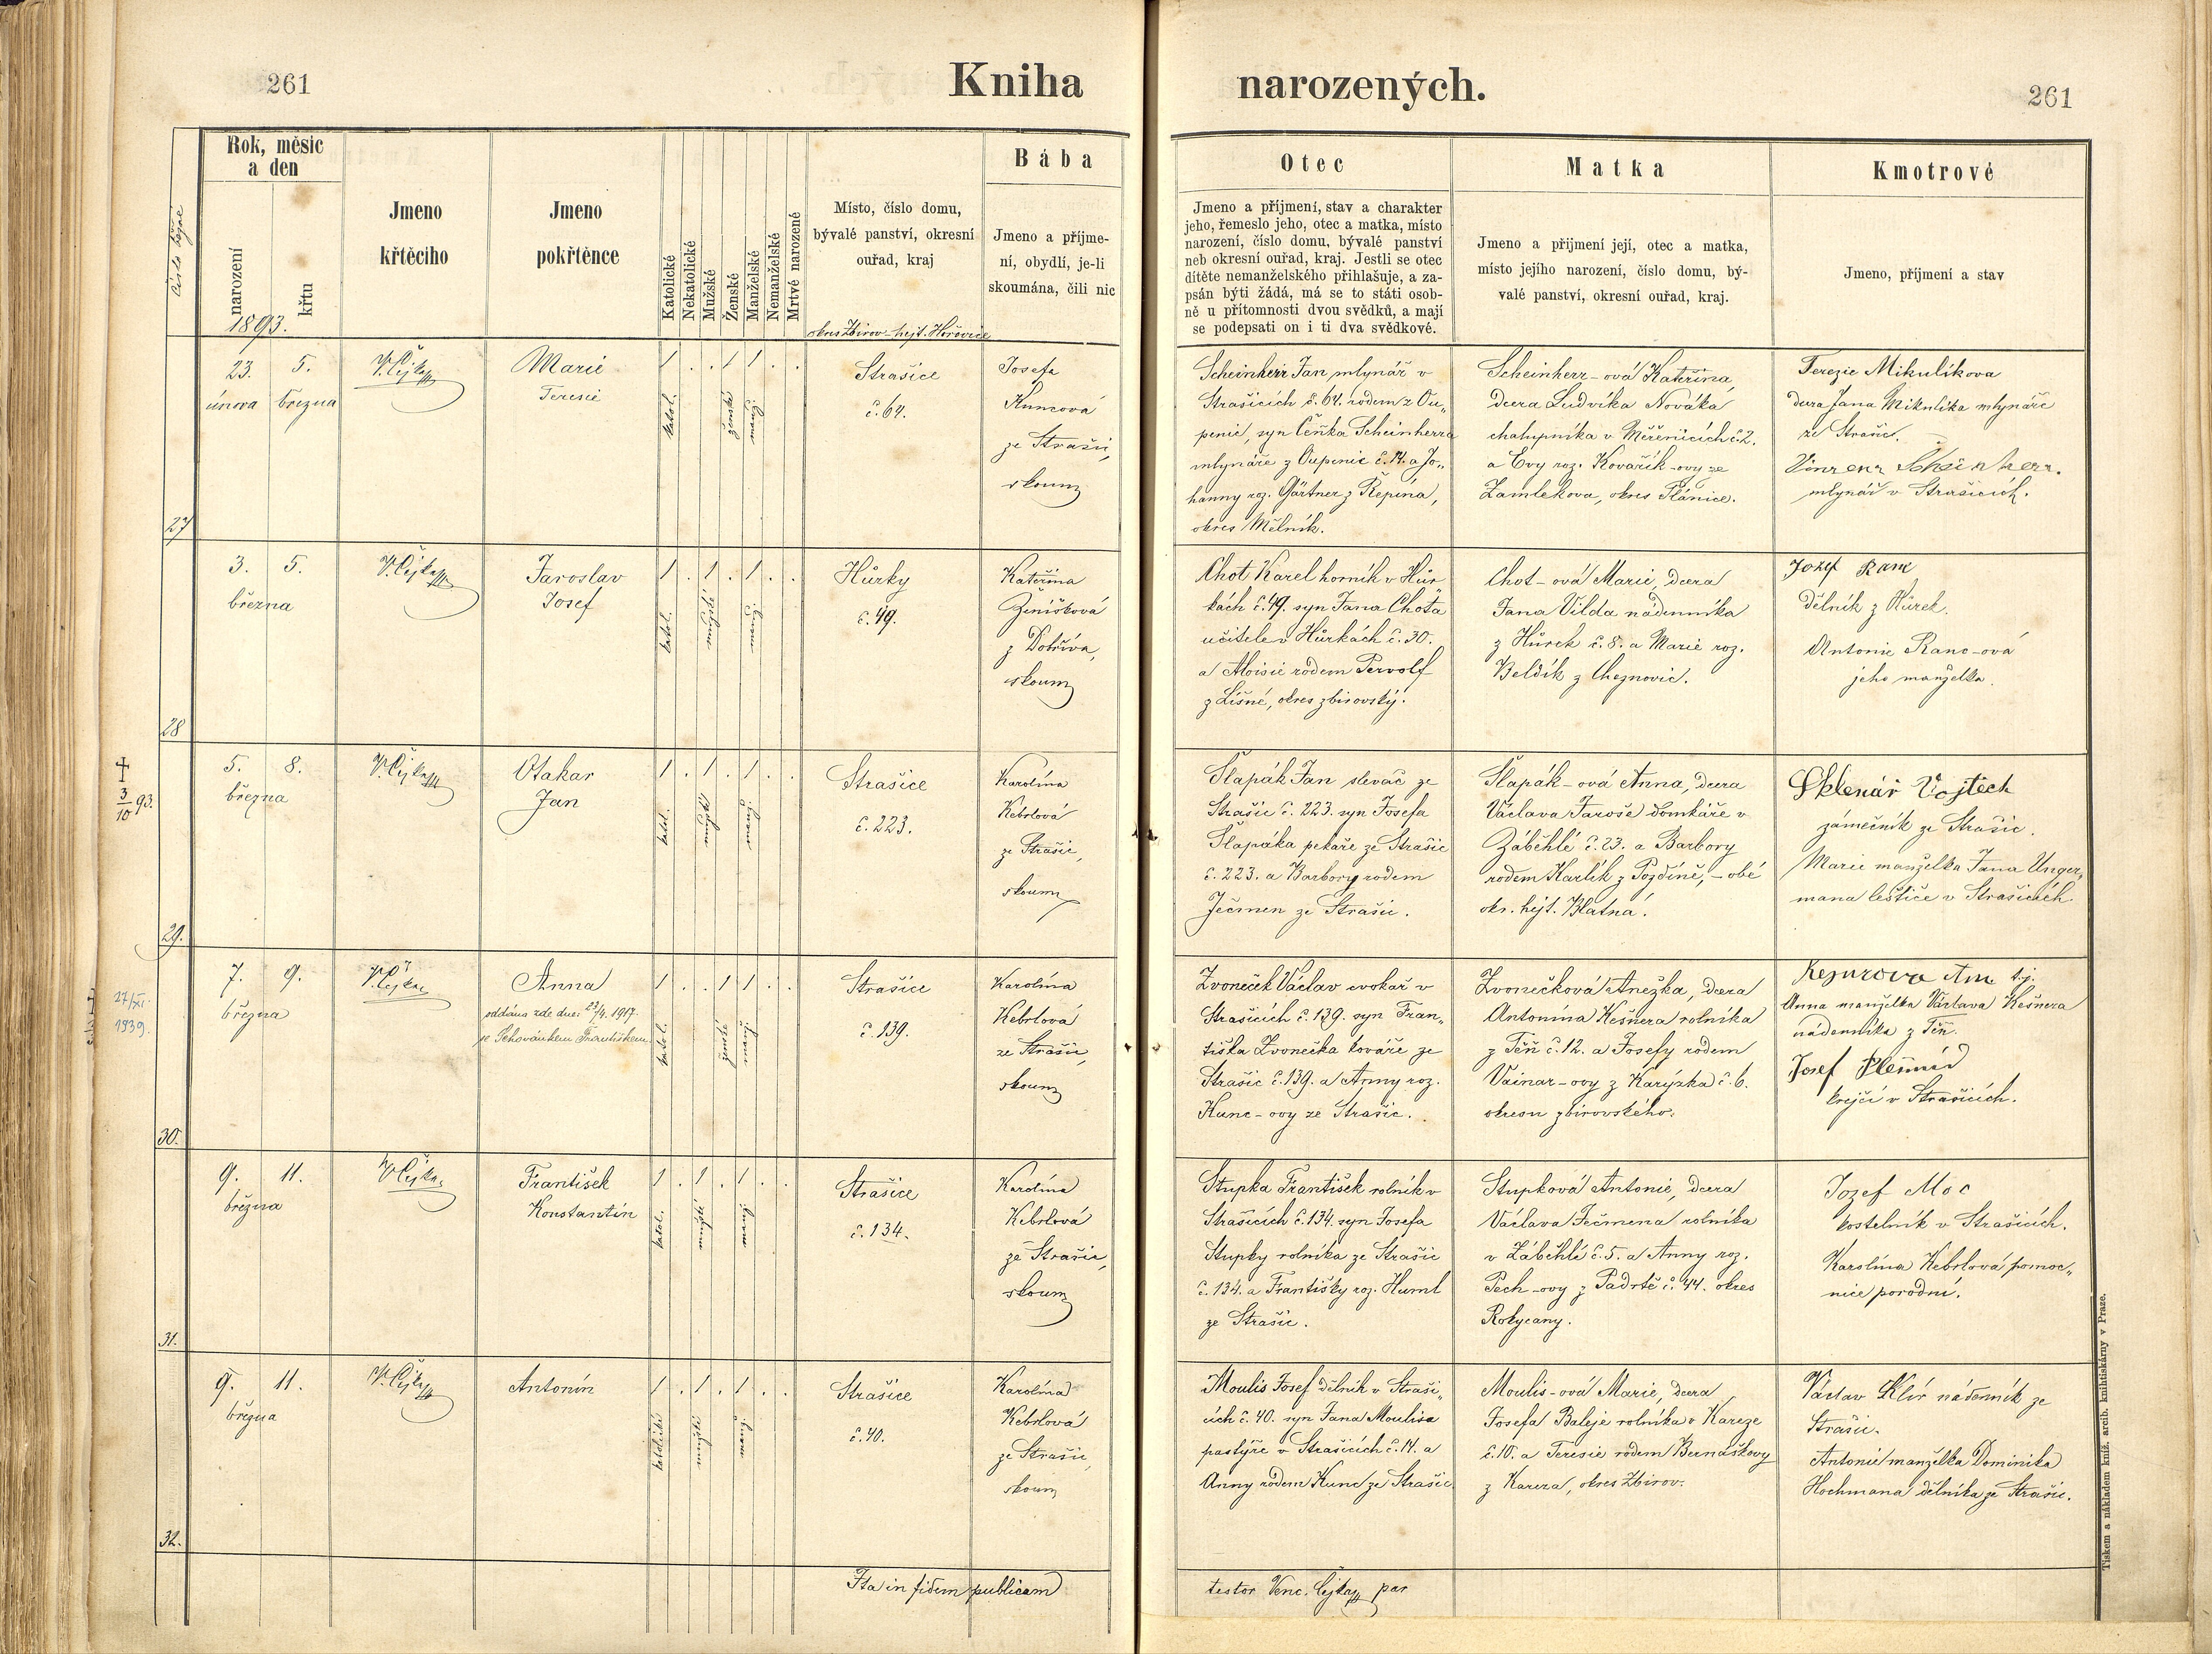 261
Kniha
narozených.
261
číslo běžné
Rok, měsíc
a den
narození
křtu
1893.
Jmeno
křtěcího
Jmeno
pokřtěnce
Katolické
Nekatolické
Mužské
Ženské
Manželské
Nemanželské
Mrtvé narozené
Místo, číslo domu,
bývalé panství, okresní
ouřad, kraj
okres Zbirov – hejt. Hořovice
Bába
Jmeno a příjme-
ní, obydlí, je-li
skoumána, čili nic
Otec
Jmeno a příjmení, stav a charakter
jeho, řemeslo jeho, otec a matka, místo
narození, číslo domu, bývalé panství
neb okresní ouřad, kraj. Jestli se otec
dítěte nemanželského přihlašuje, a za-
psán býti žádá, má se to státi osob-
ně u přítomnosti dvou svědků, a mají
se podepsati on i ti dva svědkové.
Matka
Jmeno a přijmení její, otec a matka,
místo jejího narození, číslo domu, bý-
valé panství, okresní ouřad, kraj.
Kmotrové
Jmeno, příjmení a stav
27
23. 5.
února března
V. Čejka
Marie
Teresie
1 . . 1 1 . .
katol.
ženské
manž.
Strašice
č. 64.
Josefa
Kuncová
ze Strašic,
skoum
Scheinherr Jan, mlynář v
Strašicích č. 64. rodem z Ou„
penic, syn Čeňka Scheinherra
mlynáře z Oupenic č. 14. a Jo„
hanny roz. Gärtner z Řepína,
okres Mělník.
Scheinherr-ová Kateřina,
dcera Ludvíka Nováka
chalupníka v Měřenicích č. 2.
a Evy roz. Kovařík-ovy ze
Zamlekova, okres Plánice.
Terezie Mikulikova
dcera Jana Mikulíka mlynáře
ze Strašic.
Vinzenz Scheinherr.
mlynář v Strašicích.
28
3. 5.
března
V. Čejka
Jaroslav
Josef
1 . 1 . 1 . .
katol.
manž.
Hůrky
č. 49.
Kateřina
Ženíšková
z Dobříva,
skoum
Chot Karel horník v Hůr
kách č. 49. syn Jana Chota
učitele v Hůrkách č. 30.
a Aloisie rodem Pervolf
z Líšné, okres zbirovský.
Chot-ová Marie, dcera
Jana Vilda nádenníka
z Hůrek č. 8. a Marie roz.
Beldík z Cheznovic.
Jozef Ranc
dělník z Hůrek.
Antonie Ranc-ová
jeho manželka.
† 3/10 93.
29.
5. 8.
března
V. Čejka
Otakar
Jan
1 . 1 . 1 . .
katol.
manž.
Strašice
č. 223.
Karolína
Kebrlová
ze Strašic,
skoum
Šlapák Jan slevač ze
Strašic č. 223. syn Josefa
Šlapáka pekaře ze Strašic
č. 223. a Barbory rodem
Ječmen ze Strašic.
Šlapák-ová Anna, dcera
Václava Jaroše domkáře v
Záběhlé č. 23. a Barbory
rodem Karlík z Pozdíně, – obé
okr. hejt. Blatná.
Sklenár Vojtěch
zámečník ze Strašic.
Marie manželka Jana Unger„
mana leštiče v Strašicích
27/XI.
1939.
30.
7. 9.
března
V. Čejka
Anna
oddána zde dne: 23/4. 1917.
se Pehovánkem Františkem
1 . . 1 1 . .
katol.
ženské
manž.
Strašice
č 139.
Karolína
Kebrlová
ze Strašic,
skoum
Zvoneček Václav cvokař v
Strašicích č. 139. syn Fran„
tiška Zvonečka kováře ze
Strašic č. 139. a Anny roz.
Kunc-ovy ze Strašic.
Zvonečková Anežka, dcera
Antonína Kešnera rolníka
z Těň č. 12. a Josefy rodem
Vainar-ovy z Karýzka č. 6.
okresu zbirovského.
t. j.
Anna manželka Václava Kešnera
nádenníka z Těň.
Josef
krejčí v Strašicích.
31.
9. 11.
března
V. Čejka
František
Konstantin
1 . 1 . 1 . .
katol.
manž.
Strašice
č. 134.
Karolína
Kebrlová
ze Strašic,
skoum
Stupka František rolník v
Strašicích č. 134. syn Josefa
Stupky rolníka ze Strašic
č. 134. a Františky roz. Huml
ze Strašic.
Stupková Antonie, dcera
Václava Ječmena rolníka
v Záběhlé č. 5. a Anny roz.
Pech-ovy z Padrtě č. 44. okres
Rokycany.
Jozef Moc
kostelník v Strašicích.
Karolína Kebrlová pomoc„
nice porodní.
32.
9. 11.
března
V. Čejka
Antonín
1 . 1 . 1 . .
katolické
mužské
manž.
Strašice
č. 40.
Karolína
Kebrlová
ze Strašic,
skoum
Moulis Josef dělník v Straši„
cích č. 40. syn Jana Moulisa
pastýře v Strašicích č. 14. a
Anny rodem Kunc ze Strašic
Moulis-ová Marie, dcera
Josefa Baleje rolníka v Kareze
č. 10. a Teresie rodem Bernáškovy
z Kareza, okres Zbirov.
Václav Klír nádenník ze
Strašic.
Antonie manželka Dominika
Hochmana dělníka ze Strašic.
Ita in fidem publicam
testor Venc. Čejka par
Tiskem a nákladem kníž. arcib. knihtiskárny v Praze.